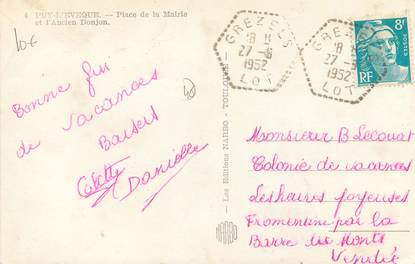 4 PUY-L'EVEQUE. — Place de la Mairie
et l'Ancien Donjon.
10€
Bonne fin
de vacances
Baisers
Colette
Danielle
Les Editions NARBO - TOULOUSE
GREZELS
18 H
27-8
1952
LOT
GREZELS
18 H
27-8
1952
LOT
8F
POSTES
RF
Monsieur B Lecouat
Colonie de vacances
Les heures joyeuses
Fromentine par la
Barre des Monts
Vendée